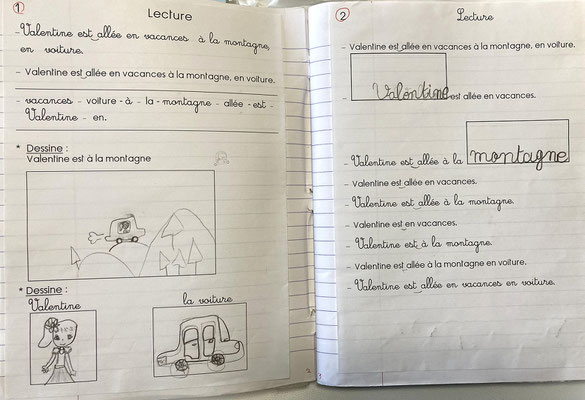 1
Lecture
- Valentine est allée en vacances à la montagne,
en voiture.
- Valentine est allée en vacances à la montagne, en voiture.
- vacances - voiture - à - la - montagne - allée - est -
Valentine - en.
* Dessine :
Valentine est à la montagne
* Dessine :
Valentine
la voiture
2
Lecture
- Valentine est allée en vacances à la montagne, en voiture.
- Valentine est allée en vacances.
- Valentine est allée à la montagne
- Valentine est allée en vacances.
- Valentine est allée à la montagne.
- Valentine est en vacances.
- Valentine est à la montagne.
- Valentine est allée à la montagne en voiture.
- Valentine est allée en vacances en voiture.